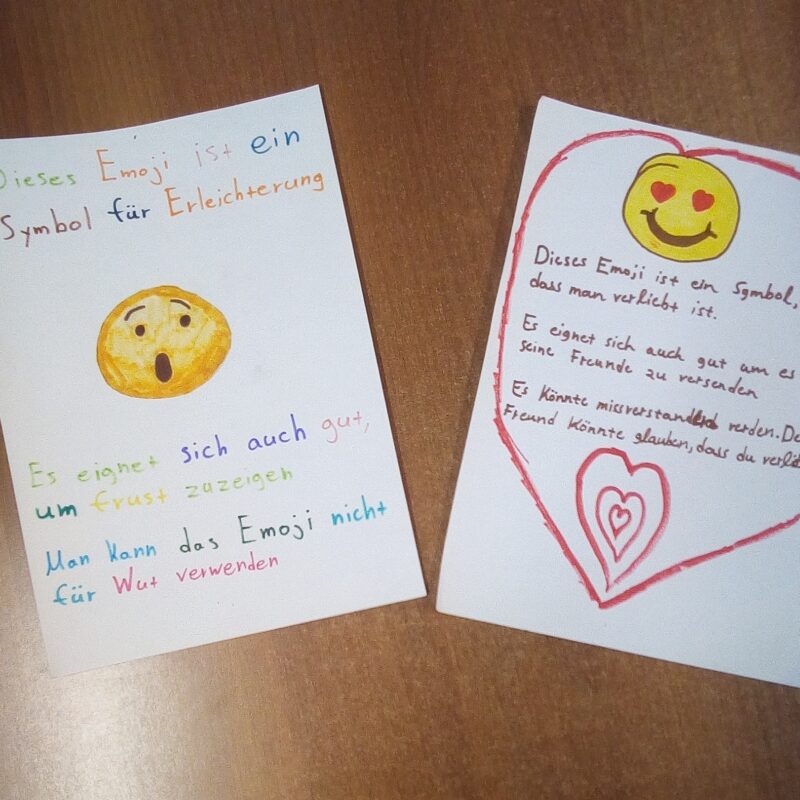 Dieses Emoji ist ein
Symbol für Erleichterung
Es eignet sich auch gut,
um frust zuzeigen
Man kann das Emoji nicht
für Wut verwenden
Dieses Emoji ist ein Symbol,
dass man verliebt ist.
Es eignet sich auch gut um es
seine Freunde zu versenden
Es könnte missverstanden verden.
Freund könnte glauben, dass du